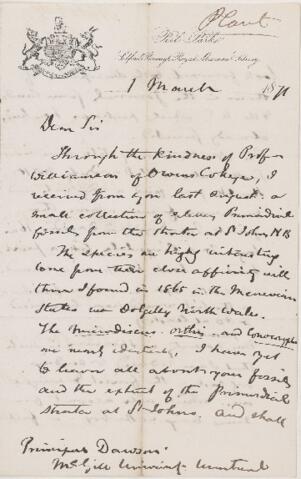 Plant
Peel Park
Salford Borough Royal Museum & Library
1 March 1871
Dear Sir
Through the kindness of Profr
Williamson of Owens College, I
received from you last August a
small collection of eleven Primordial
fossils from the strata at St John N B
The species are highly interesting
to me from their close affinity with
those I found in 1865 in the Menevian
Slates near Dolgelly North Wales.
The Microdiscus, orthis and Conocoryphe
are nearly identical, I have yet
to learn all about your fossils
and the extent of the Primordial
strata at St Johns. and shall
Principal Dawson
McGill University Montreal